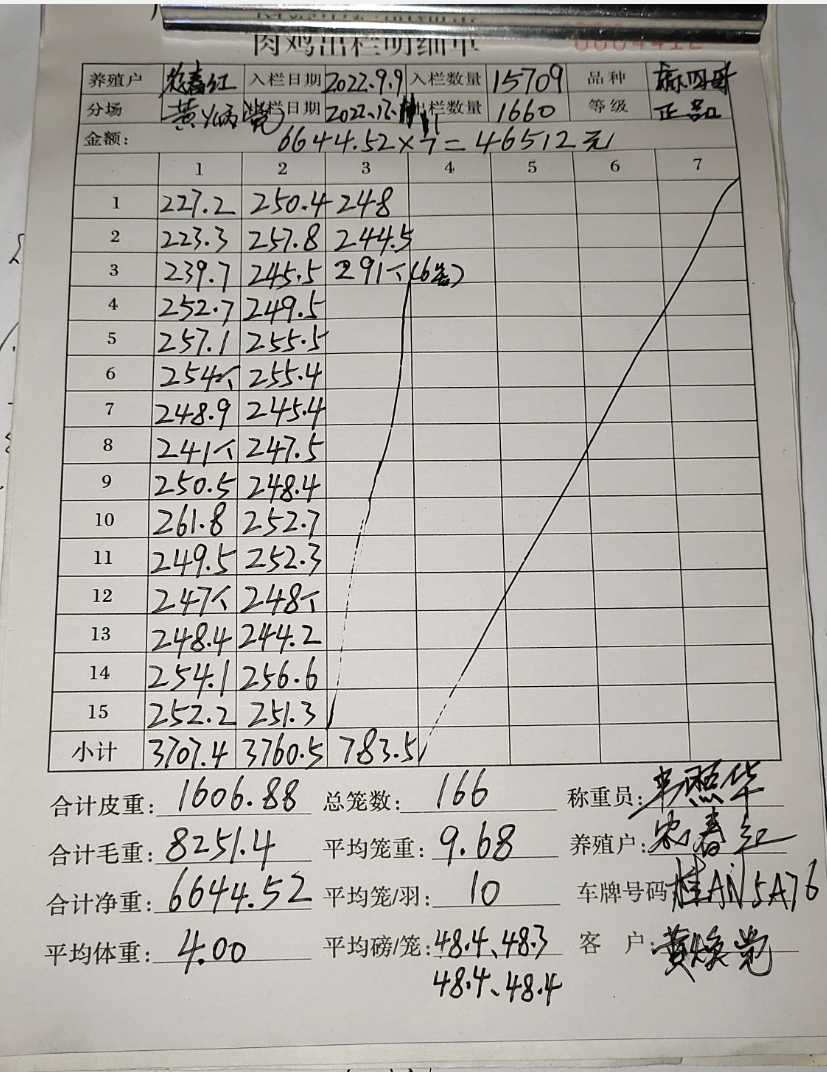 肉鸡出栏明细单
养殖户 农春红 入栏日期 2022.9.9 入栏数量 15709 品种 麻四哥
分场 栏日期 2022.12. 栏数量 1660 等级 正品
金额: 6644.52×7=46512元
1 2 3 4 5 6 7
1 227.2 250.4 248
2 223.3 257.8 244.5
3 239.7 245.5 291个(6笼)
4 252.7 249.5
5 257.1 255.5
6 254个 255.4
7 248.9 245.4
8 241个 247.5
9 250.5 248.4
10 261.8 252.7
11 249.5 252.3
12 247个 248个
13 248.4 244.2
14 254.1 256.6
15 252.2 251.3
小计 3707.4 3760.5 783.5
合计皮重: 1606.88 总笼数: 166 称重员:
合计毛重: 8251.4 平均笼重: 9.68 养殖户: 农春红
合计净重: 6644.52 平均笼/羽: 10 车牌号码 桂AN5A76
平均体重: 4.00 平均磅/笼: 48.4、48.3 客户: 黄焕党
48.4、48.4